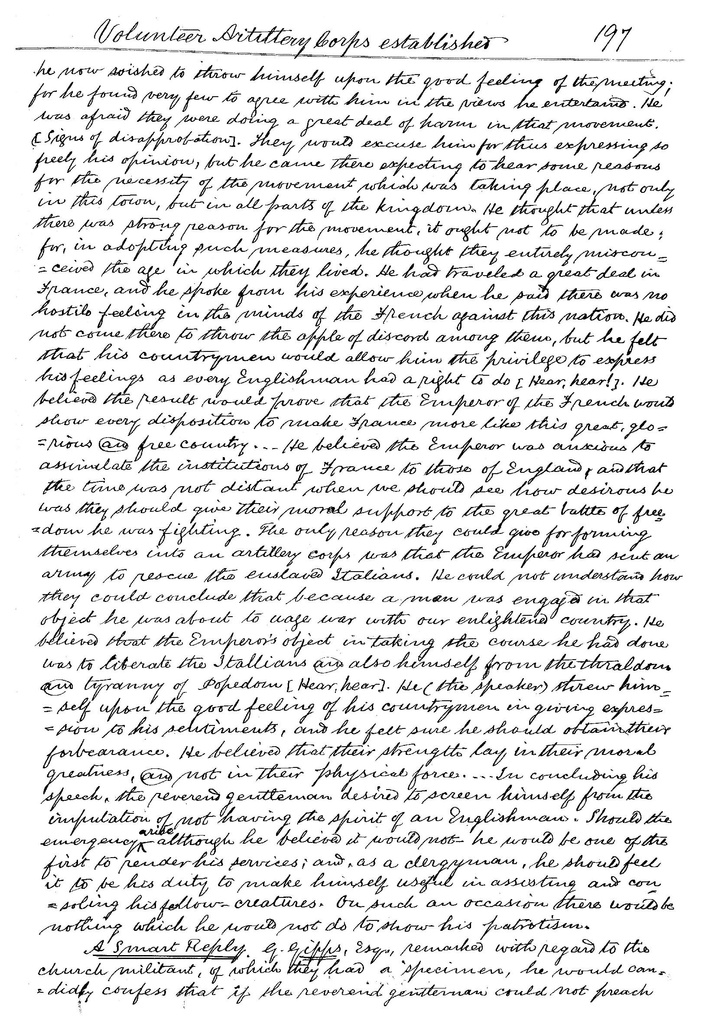 Volunteer Artillery Corps established 197
he now wished to throw himself upon the good feeling of the meeting;
for he found very few to agree with him in the views he entertained. He
was afraid they were doing a great deal of harm in that movement.
[Signs of disapprobation]. They would excuse him for thus expressing so
freely his opinion, but he came there expecting to hear some reasons
for the necessity of the movement which was taking place, not only
in this town, but in all parts of the kingdom. He thought that unless
there was strong reason for the movement, it ought not to be made;
for, in adopting such measures, he thought they entirely miscon=
=ceived the age in which they lived. He had traveled a great deal in
France, and he spoke from his experience when he said there was no
hostile feeling in the minds of the French against this nation. He did
not come there to throw the apple of discord among them, but he felt
that his countrymen would allow him the privilege to express
his feelings as every Englishman had a right to do [Hear, hear!]. He
believed the result would prove that the Emperor of the French would
show every disposition to make France more like this great, glo=
=rious and free country. ... He believed the Emperor was anxious to
assimilate the institutions of France to those of England, and that
the time was not distant when we should see how desirous he
was they should give their moral support to the great battle of free=
=dom he was fighting. The only reason they could give for forming
themselves into an artillery corps was that the Emperor had sent an
army to rescue the enslaved Italians. He could not understand how
they could conclude that because a man was engaged in that
object he was about to wage war with our enlightened country. He
believed that the Emperor's object in taking the course he had done
was to liberate the Itallians and also himself from the thraldom
and tyranny of Popedom [Hear, hear]. He (the speaker) threw him=
=self upon the good feeling of his countrymen in giving expres=
=sion to his sentiments, and he felt sure he should obtain their
forbearance. He believed that their strength lay in their moral
greatness, and not in their physical force. ... In concluding his
speech, the reverend gentleman desired to screen himself from the
imputation of not having the spirit of an Englishman. Should the
emergency arise although he believed it would not- he would be one of the
first to render his services; and, as a clergyman, he should feel
it to be his duty to make himself useful in assisting and con
=soling his fellow-creatures. On such an occasion there would be
nothing which he would not do to show his patriotism.
A Smart Reply. G. Gipps, Esq., remarked with regard to the
church militant, of which they had a specimen, he would can=
=didly confess that if the reverend gentleman could not preach